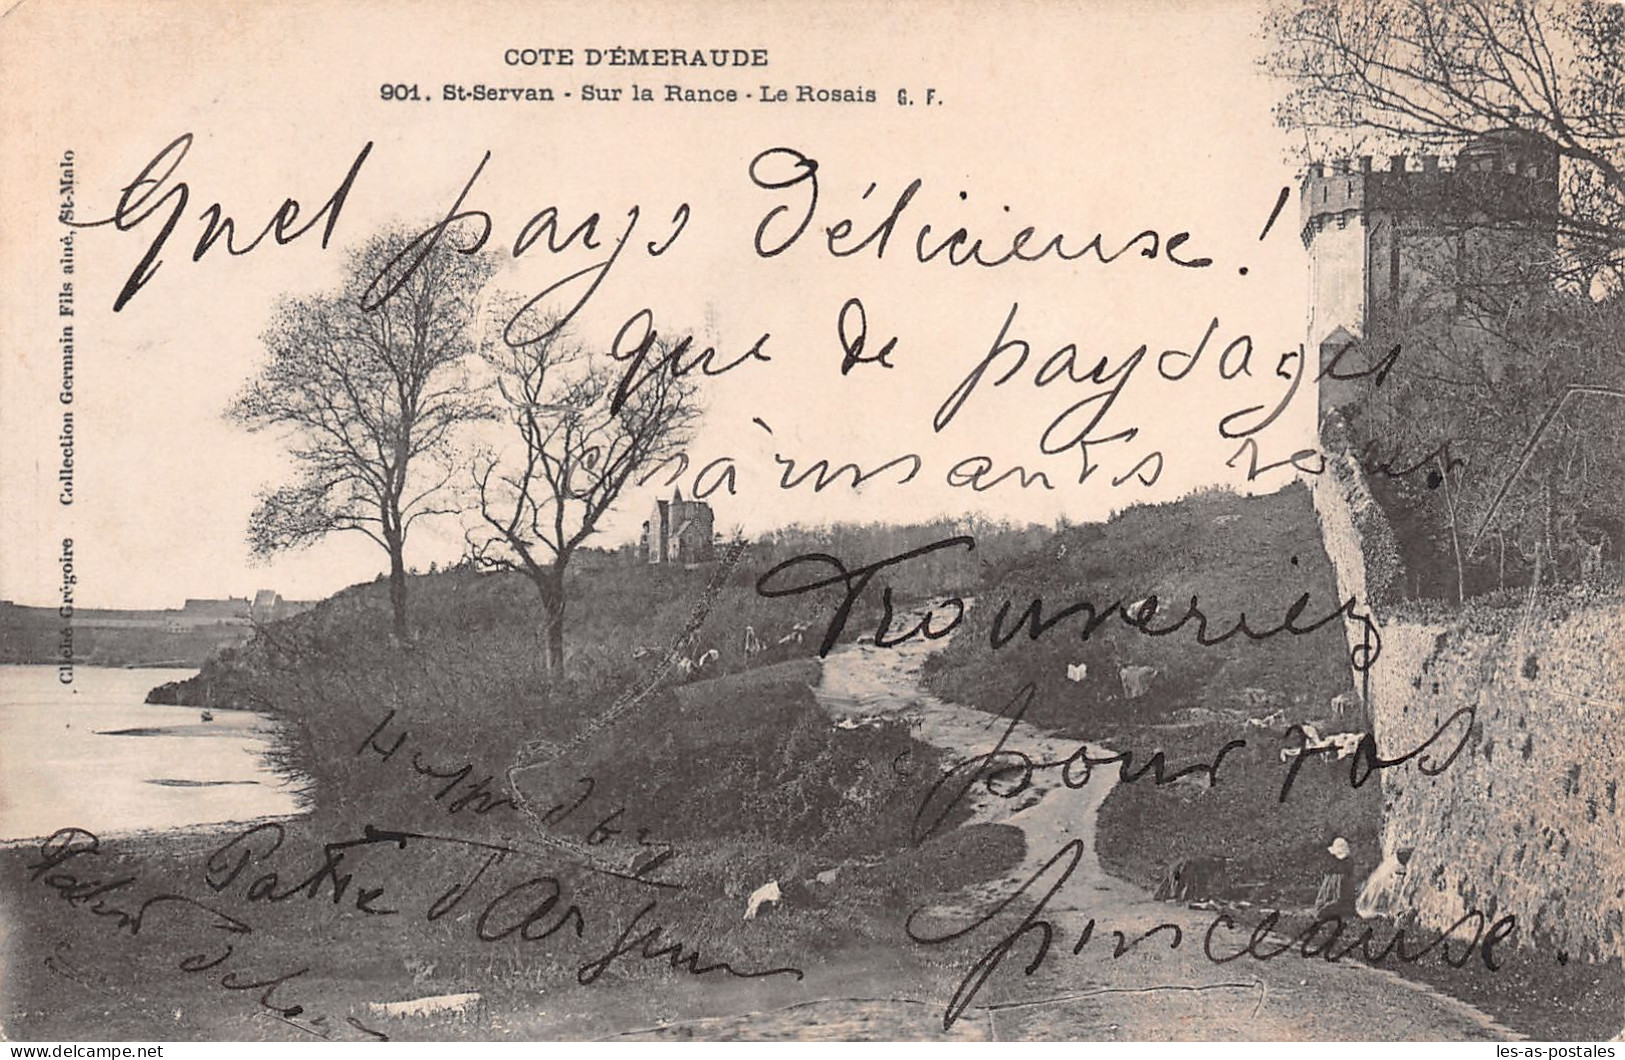 COTE D'ÉMERAUDE
901. St-Servan - Sur la Rance - Le Rosais G. F.
Cliché Grégoire Collection Germain Fils ainé, St-Malo
Quel pays délicieuse!
que de paysages
charmants vous
trouveriez
pour vos
pinceause.
les-as-postales